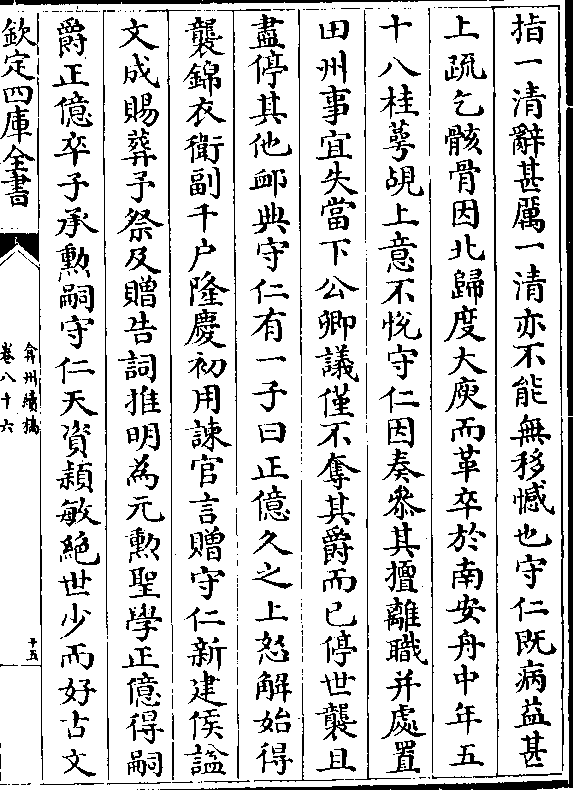 指一清辭甚厲一清亦不能無移憾也守仁既病益甚
上疏乞骸骨因北歸度大庾而革卒於南安舟中年五
十八桂萼覘上意不悅守仁因奏叅其擅離職并處置
田州事宜失當下公卿議僅不奪其爵而已停世襲且
盡停其他䘏典守仁有一子曰正億久之上怒解始得
襲錦衣衛副千户隆慶初用諫官言贈守仁新建侯諡
文成賜葬予祭及贈告詞推明為元勲聖學正億得嗣
爵正億卒子承勲嗣守仁天資頴敏絶世少而好古文
欽定四庫全書
弇州續稿
卷八十六
十五